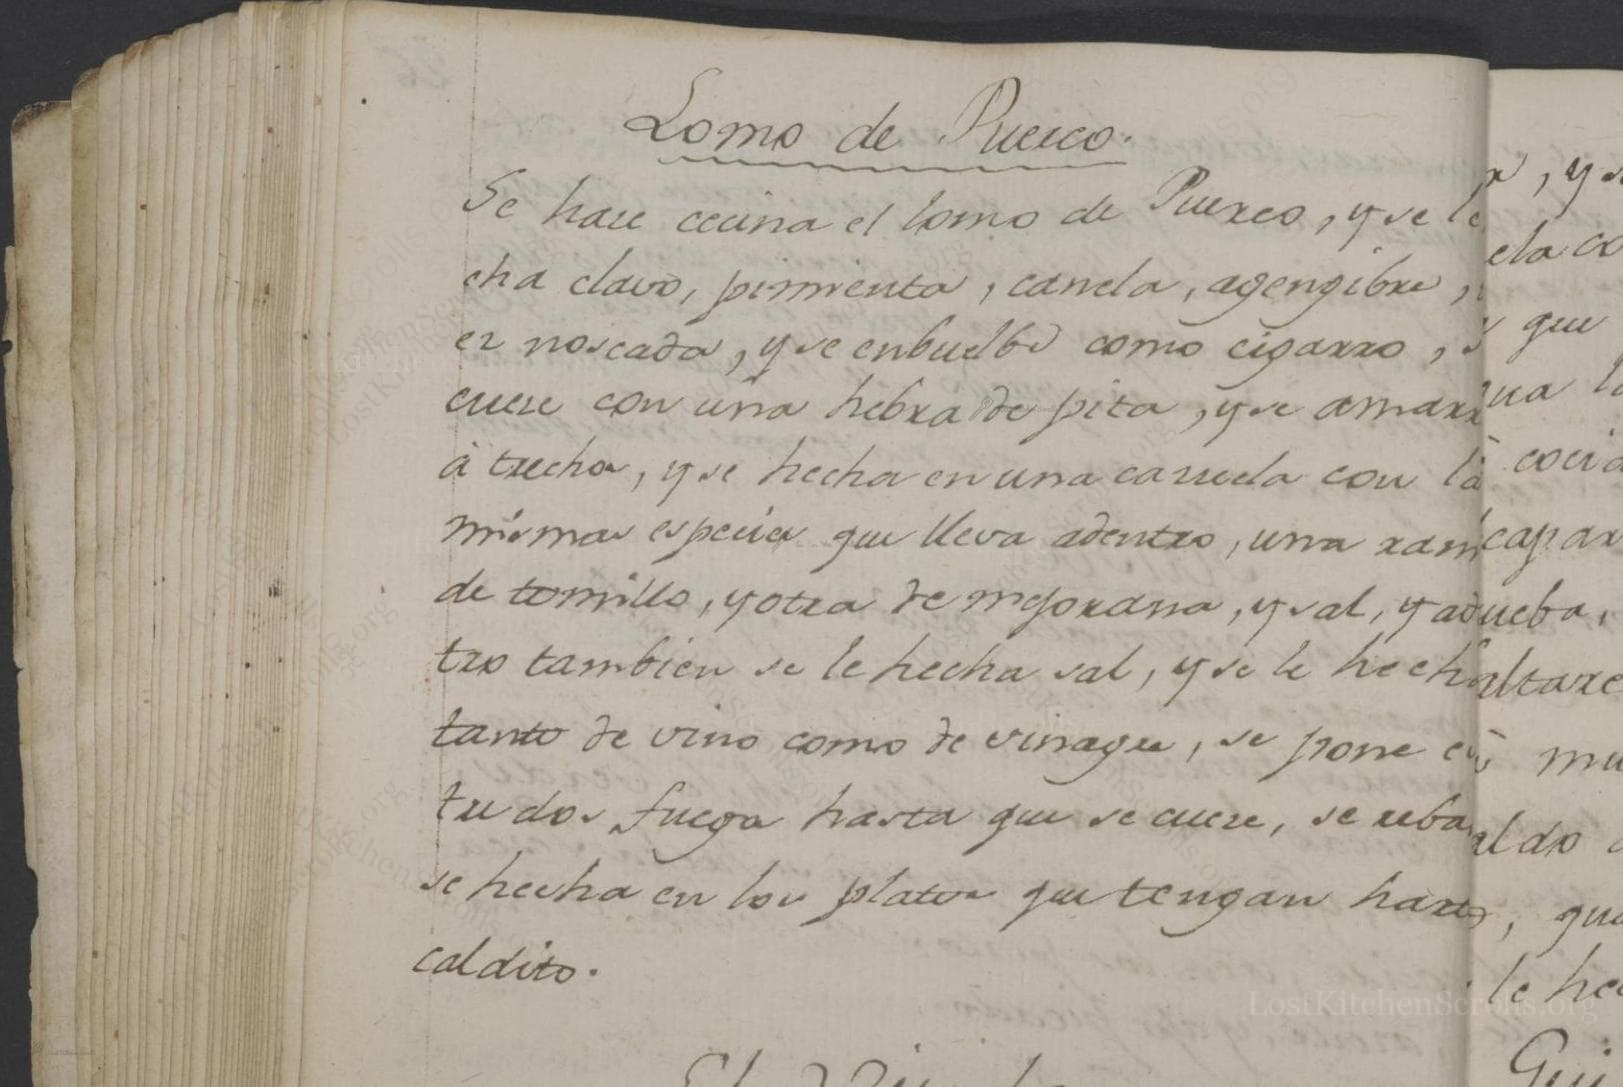 Lomo de Puerco.
Se hace cecina el lomo de Puerco, y se le
cha clavo, pimienta, canela, agengibre,
ez noscada, y se enbuelbe como cigarro,
cuese con una hebra de pita, y se amarr
à trecho, y se hecha en una cazuela con la
misma especia que lleva adentro, una rami
de tomillo, y otra de mejorana, y sal, y ad
tro tambien se le hecha sal, y se le hech
tanto de vino como de vinagre, se pone
tre dos fuego hasta que se cuese, se reba
se hecha en los platos que tengan harto
caldito.
, y se
ela co
que
coci
capar
ueba,
altare
mu
aldo
, que
le hec
Gui
LostKitchenScrolls.org